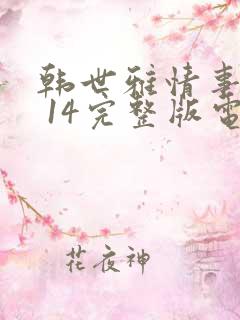 韩世雅情事
14完整版电
花夜神